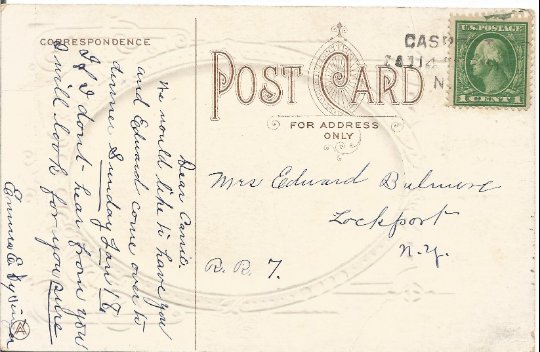 CORRESPONDENCE
POST CARD
FOR ADDRESS
ONLY
U.S. POSTAGE
1 CENT 1
CASP
N.
Dear Carrie.
We would like to have you
and Edward come over to
dinner Sunday Jan 18,
If I don't hear from you
I will look for you sure
Emma E.
Mrs Edward Bulmore
Lockport
N.Y.
R.R. 7.
A